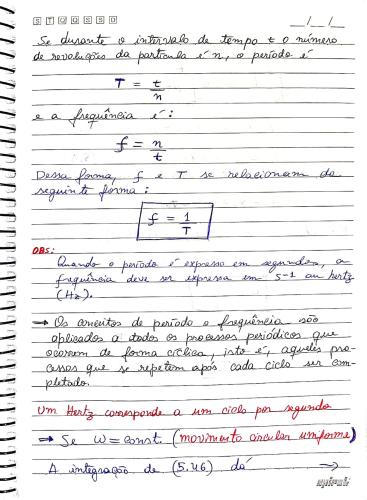 S T Q Q S S D
__/__/__
Se durante o intervalo de tempo t o número
de revoluções da partícula é n, o período é
T = t/n
e a frequência é:
f = n/t
Dessa forma, f e T se relacionam da
seguinte forma:
f = 1/T
OBS:
Quando o período é expresso em segundos, a
frequência deve ser expressa em s-1 ou hertz
(Hz).
→ Os conceitos de período e frequência são
aplicados a todos os processos periódicos que
ocorrem de forma cíclica, isto é, aqueles pro-
cessos que se repetem após cada ciclo ser com-
pletado.
Um Hertz corresponde a um ciclo por segundo
⇒ Se ω = const. (movimento circular uniforme)
A integração de (5.46) dá →